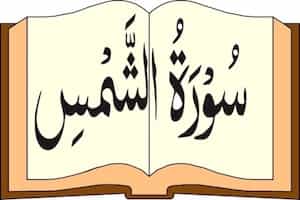 سُوْرَةُ الشَّمْسِ